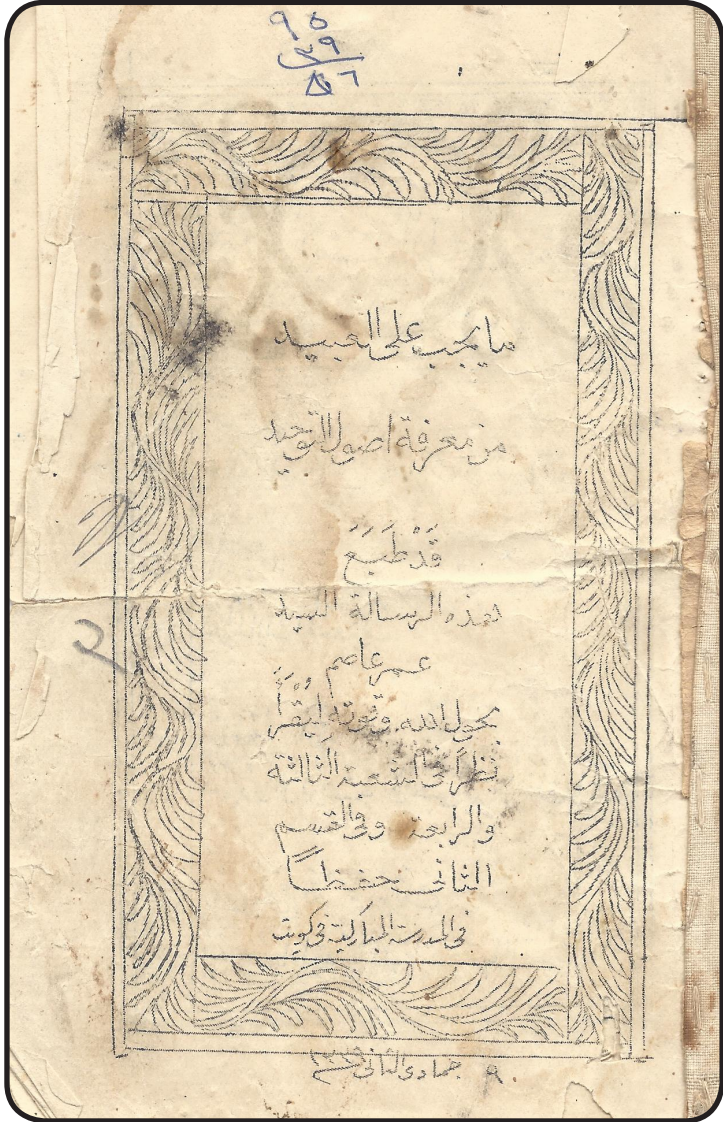 ٩٥
٣٩
ما يجب على العبيد
من معرفة اصول التوحيد
قَدْ طَبَعَ
هذه الرسالة السيد
عمر عاصم
بحول الله وقوته لِيُقْرَأَ
نظراً في الشعبة الثالثة
والرابعة وفي القسم
الثاني حفظاً
في المدرسة المباركية في كويت
٩ جمادى الثاني